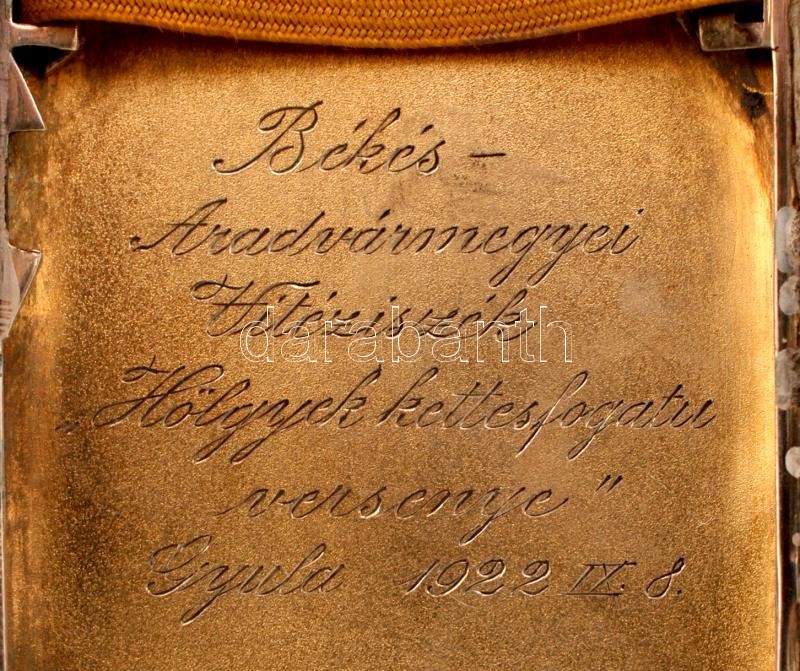 Békés –
Aradvármegyei
Vitéziszék
darabanth
„Hölgyek kettesfogatu
versenye"
Gyula 1922 IX. 8.